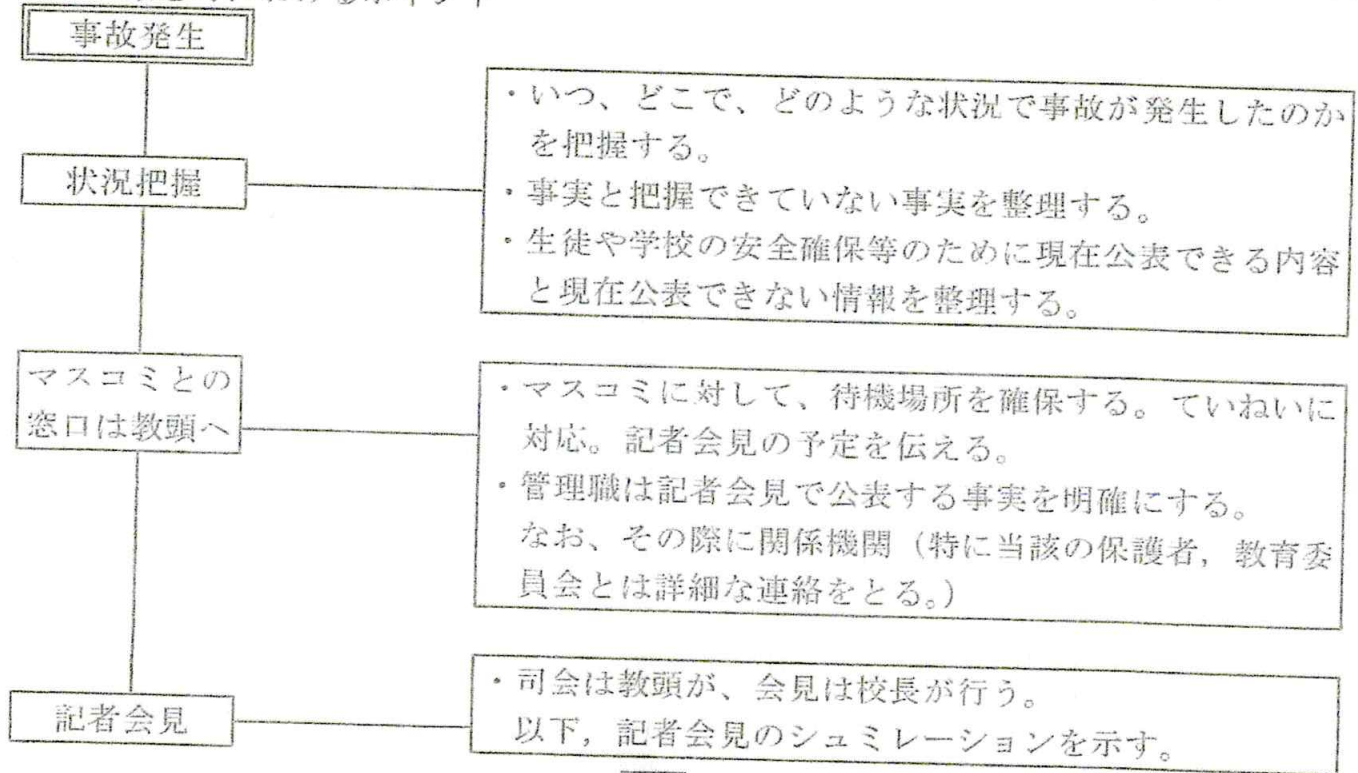 事故発生
状況把握
・いつ、どこで、どのような状況で事故が発生したのか
を把握する。
・事実と把握できていない事実を整理する。
・生徒や学校の安全確保等のために現在公表できる内容
と現在公表できない情報を整理する。
マスコミとの
窓口は教頭へ
・マスコミに対して、待機場所を確保する。ていねいに
対応。記者会見の予定を伝える。
・管理職は記者会見で公表する事実を明確にする。
なお、その際に関係機関（特に当該の保護者，教育委
員会とは詳細な連絡をとる。）
記者会見
・司会は教頭が、会見は校長が行う。
以下，記者会見のシュミレーションを示す。